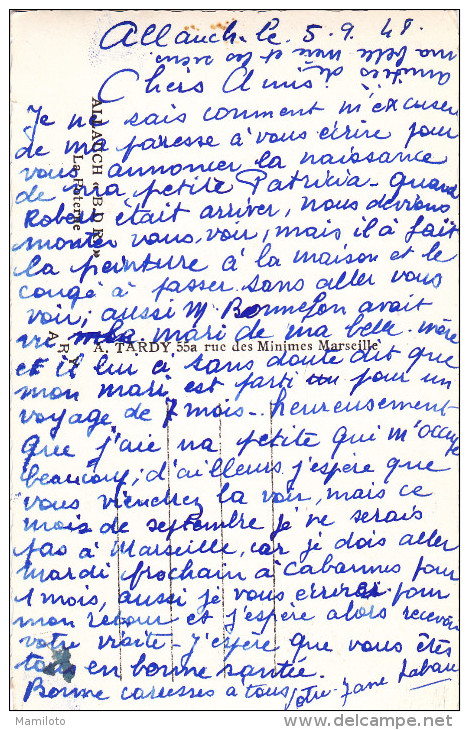 Allauch. le. 5. 9. 48.
amitiés de
ma belle mère et les siens
Chers Amis.
Je ne sais comment m'excuser
de ma paresse à vous écrire pour
vous annoncer la naissance
de ma petite Patricia - quand
Robert était arriver, nous devions
monter vous voir, mais il à fait
la peinture à la maison et le
congé à passer sans aller vous
voir; aussi M Bonnefon avait
vu le mari de ma belle mère
et il lui a sans doute dit que
mon mari est parti pour un
voyage de 7 mois - heureusement
que j'aie ma petite qui m'occupe
beaucoup; d'ailleurs j'espère que
vous viendrez la voir, mais ce
mois de septembre je ne serais
pas à Marseille, car je dois aller
mardi prochain à Cabannes pour
1 mois, aussi je vous écrirai pour
mon retour et j'espère alors recevoir
votre visite - j'espère que vous êtes
tous en bonne santée.
Bonne caresses à tous, votre Jane
ALLAUCH (B.D.R.)
La Poterne
A. TARDY 55a rue des Minimes Marseille
Mamiloto
www.delcampe.net